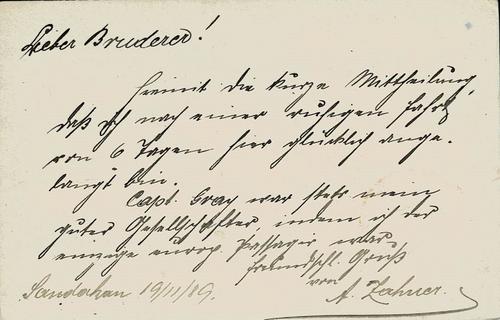 Lieber Bruderer!
Hiemit die kurze Mittheilung,
daß ich nach einer ruhigen Fahrt
von 6 Tagen hier glücklich ange-
langt bin.
Capt. Gray war stets mein
guter Gesellschafter, indem ich der
einzige europ. Passager war.
Freundschl. Gruß
von
Sandakan 19/11/89.
A. Zahner.